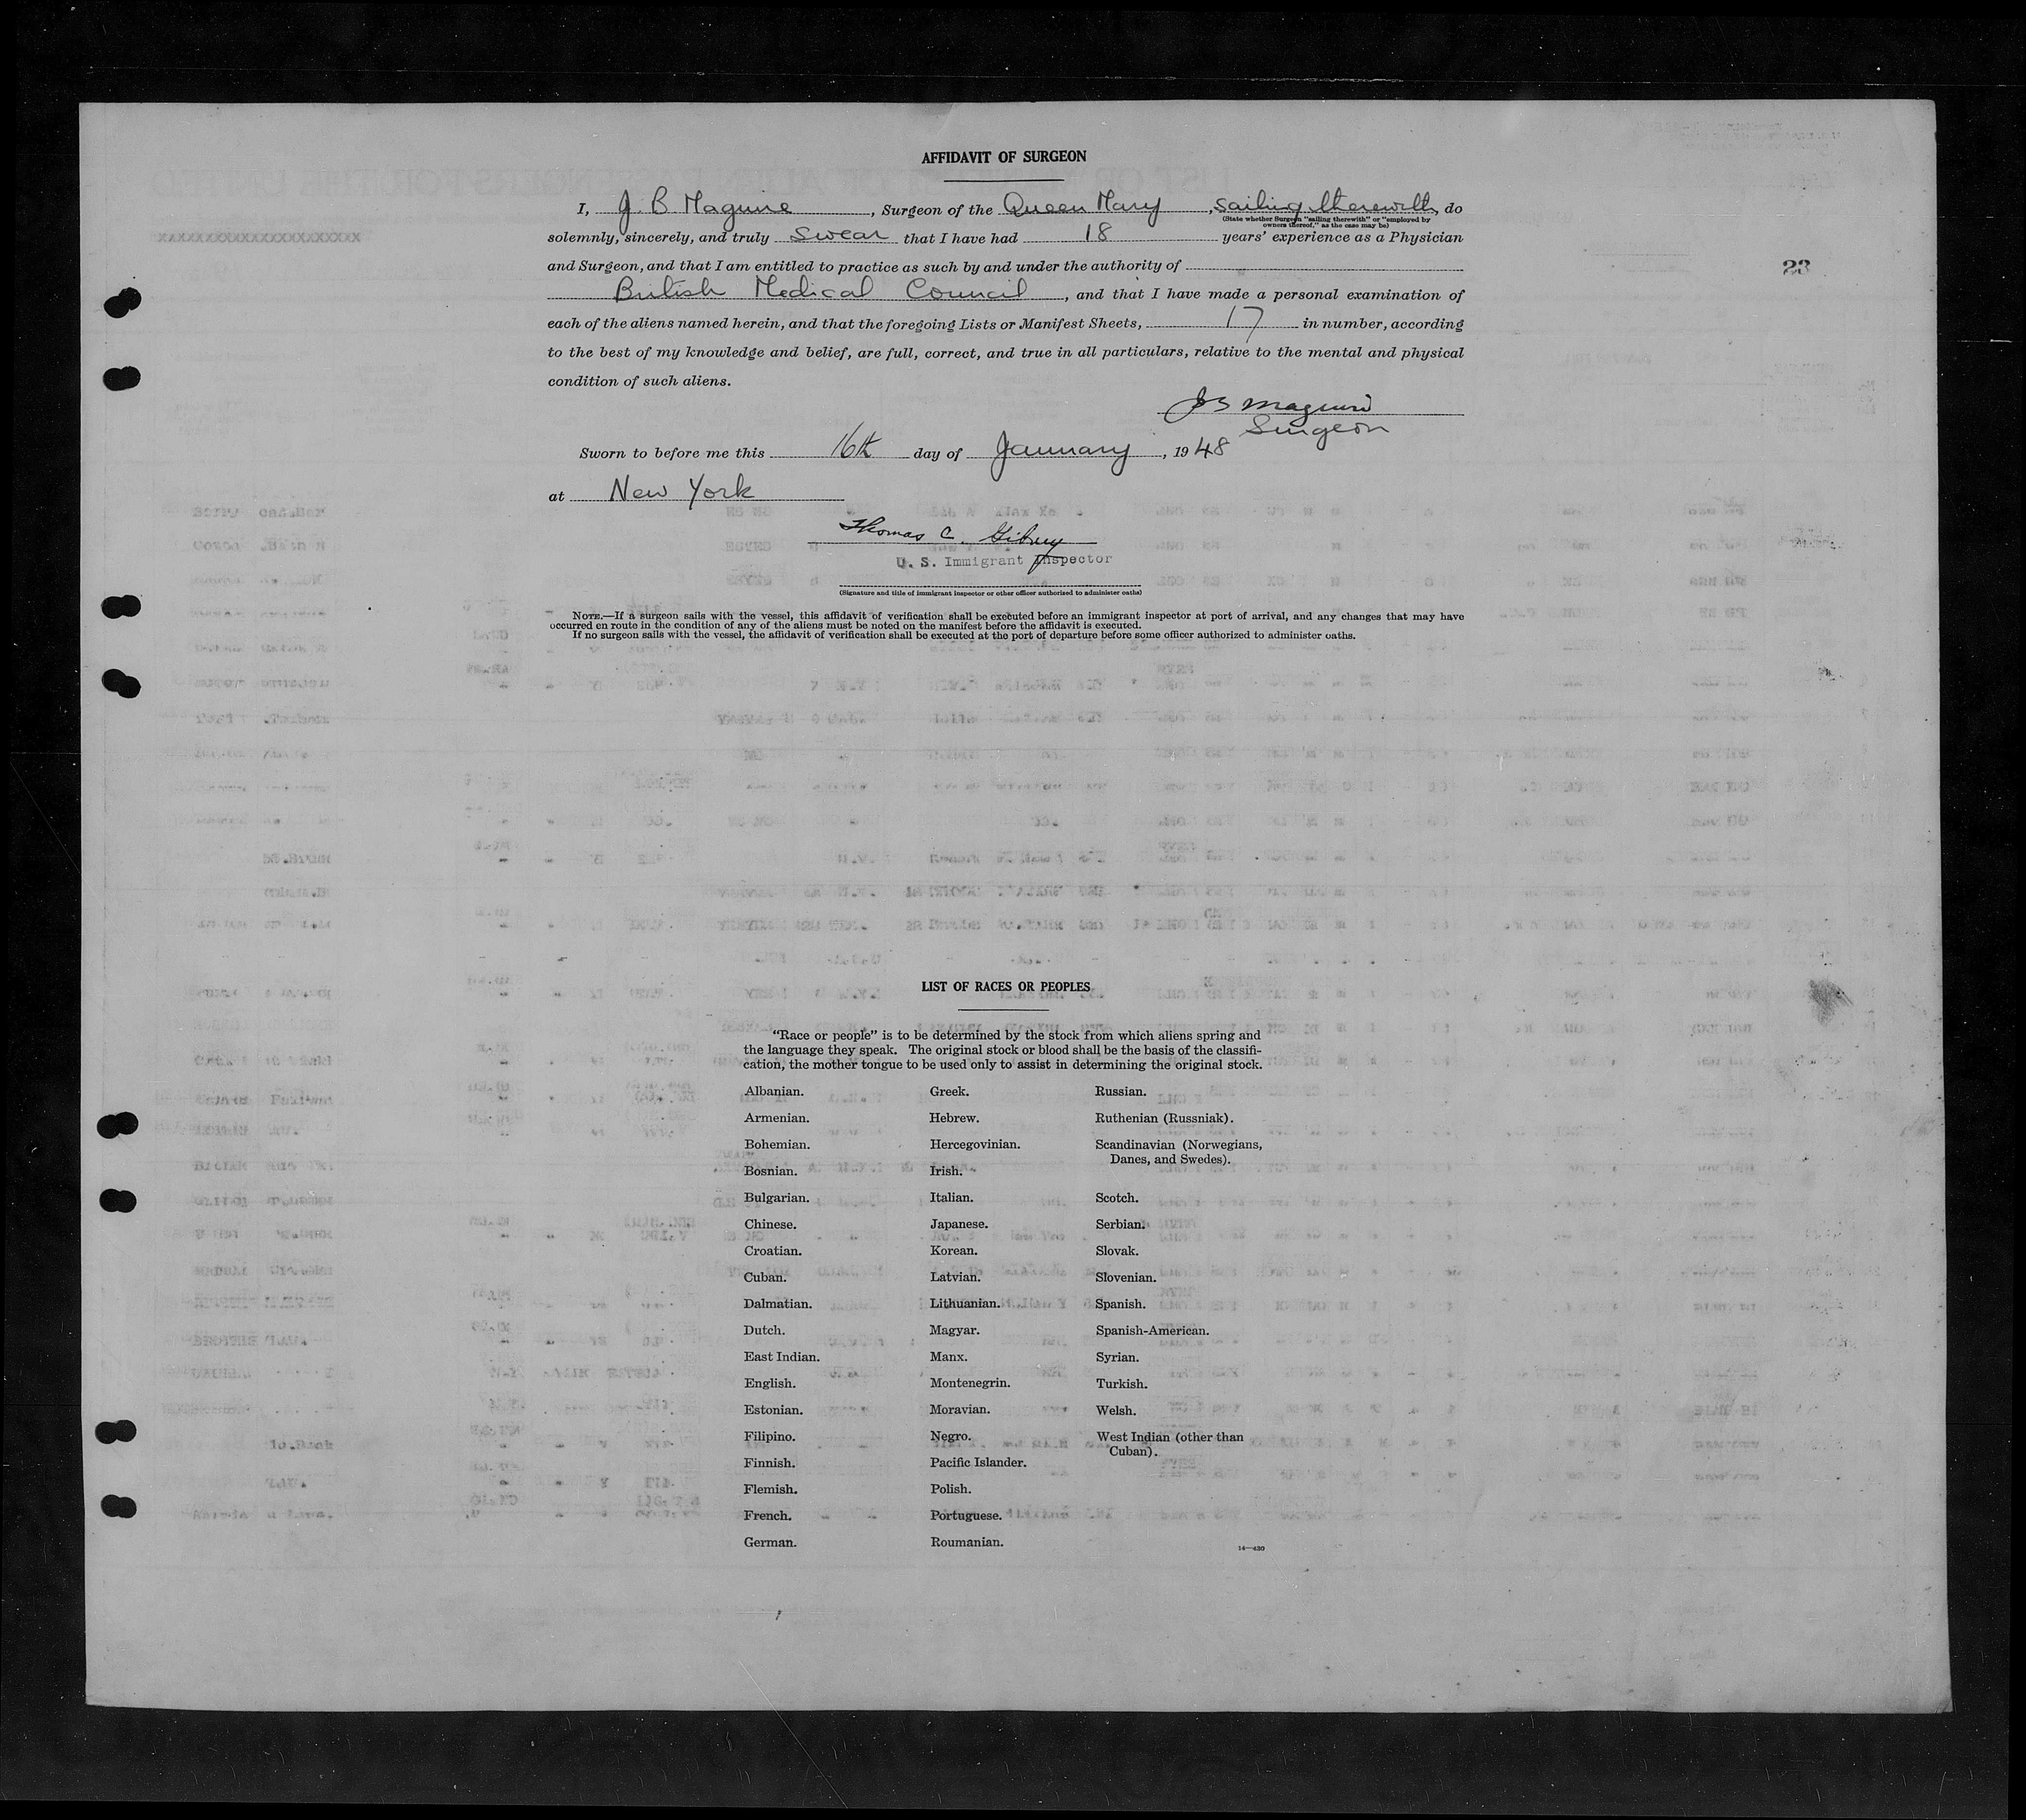 AFFIDAVIT OF SURGEON
I, J. B. Maguire, Surgeon of the Queen Mary, sailing therewith, do
(State whether Surgeon "sailing therewith" or "employed by
owners thereof," as the case may be)
solemnly, sincerely, and truly swear that I have had 18 years' experience as a Physician
and Surgeon, and that I am entitled to practice as such by and under the authority of
23
British Medical Council, and that I have made a personal examination of
each of the aliens named herein, and that the foregoing Lists or Manifest Sheets, 17 in number, according
to the best of my knowledge and belief, are full, correct, and true in all particulars, relative to the mental and physical
condition of such aliens.
J B Maguire
Surgeon
Sworn to before me this 16th day of January, 1948
at New York
Thomas C. Gibney
U. S. Immigrant Inspector
(Signature and title of immigrant inspector or other officer authorized to administer oaths)
NOTE.—If a surgeon sails with the vessel, this affidavit of verification shall be executed before an immigrant inspector at port of arrival, and any changes that may have
occurred en route in the condition of any of the aliens must be noted on the manifest before the affidavit is executed.
If no surgeon sails with the vessel, the affidavit of verification shall be executed at the port of departure before some officer authorized to administer oaths.
LIST OF RACES OR PEOPLES
"Race or people" is to be determined by the stock from which aliens spring and
the language they speak. The original stock or blood shall be the basis of the classifi-
cation, the mother tongue to be used only to assist in determining the original stock.
Albanian.
Armenian.
Bohemian.
Bosnian.
Bulgarian.
Chinese.
Croatian.
Cuban.
Dalmatian.
Dutch.
East Indian.
English.
Estonian.
Filipino.
Finnish.
Flemish.
French.
German.
Greek.
Hebrew.
Hercegovinian.
Irish.
Italian.
Japanese.
Korean.
Latvian.
Lithuanian.
Magyar.
Manx.
Montenegrin.
Moravian.
Negro.
Pacific Islander.
Polish.
Portuguese.
Roumanian.
Russian.
Ruthenian (Russniak).
Scandinavian (Norwegians,
Danes, and Swedes).
Scotch.
Serbian.
Slovak.
Slovenian.
Spanish.
Spanish-American.
Syrian.
Turkish.
Welsh.
West Indian (other than
Cuban).
14—430